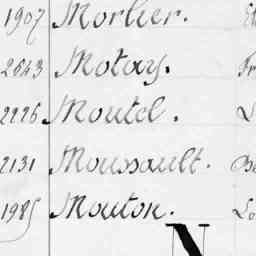 1907 Morlier.
2643 Motay. Fr
2226 Moutel.
2131 Moussault.
1985 Mouton. Lo
N